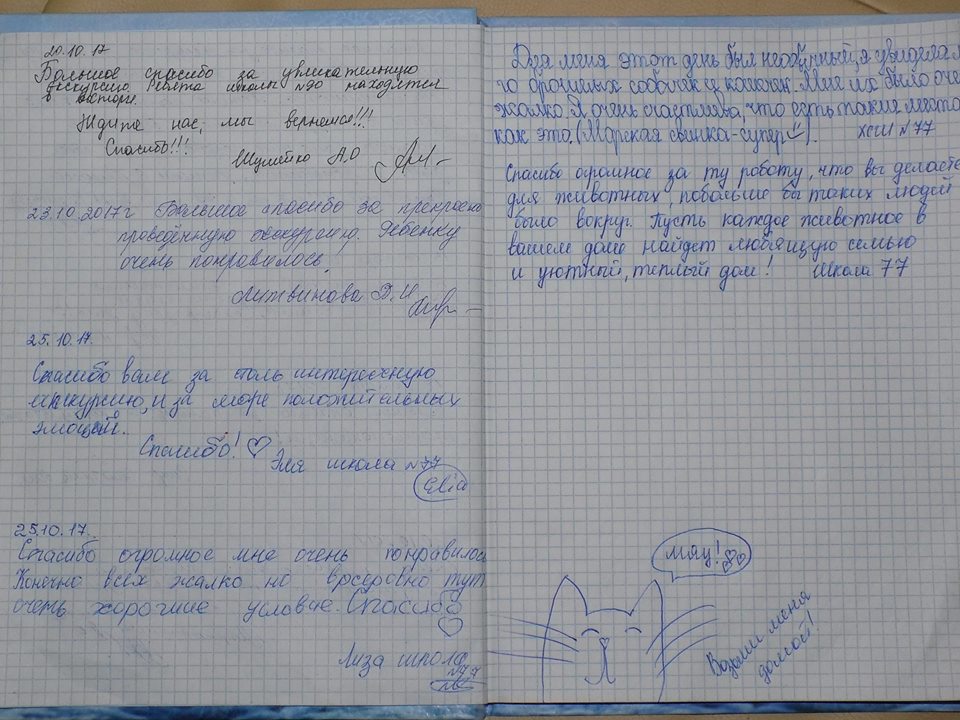 20.10.17
Большое спасибо за увлекательную
экскурсию. Ребята школы №90 находятся
в восторге.
Ждите нас, мы вернемся!!!
Спасибо!!!
Шумейко А.О
23.10.2017г Большое спасибо за прекрасно
проведённую экскурсию. Ребенку
очень понравилось.
Литвинова Д.И
25.10.17.
Спасибо вам за столь интересную
экскурсию, и за море положительных
эмоций..
Спасибо! ♡
Эля школа №77
Elia
25.10.17.
Спасибо огромное мне очень понравилос
Конечно всех жалко но всеровно тут
очень хорошие условие. Спасибо
♡
Лиза школа
№77
Для меня этот день был необычный я увидела мно
го брошеных собачек и кошек. Мне их было оче
жалко. Я очень счастлива, что есть такие места
как это. (Морская свинка-супер). ХСШ №77
Спасибо огромное за ту роботу, что вы делаете
для животных, побольше бы таких людей
было вокруг. Пусть каждое животное в
вашем доме найдет любящую семью
и уютный, теплый дом! Школа 77
мяу! ♡♡
Возьми меня
домой!